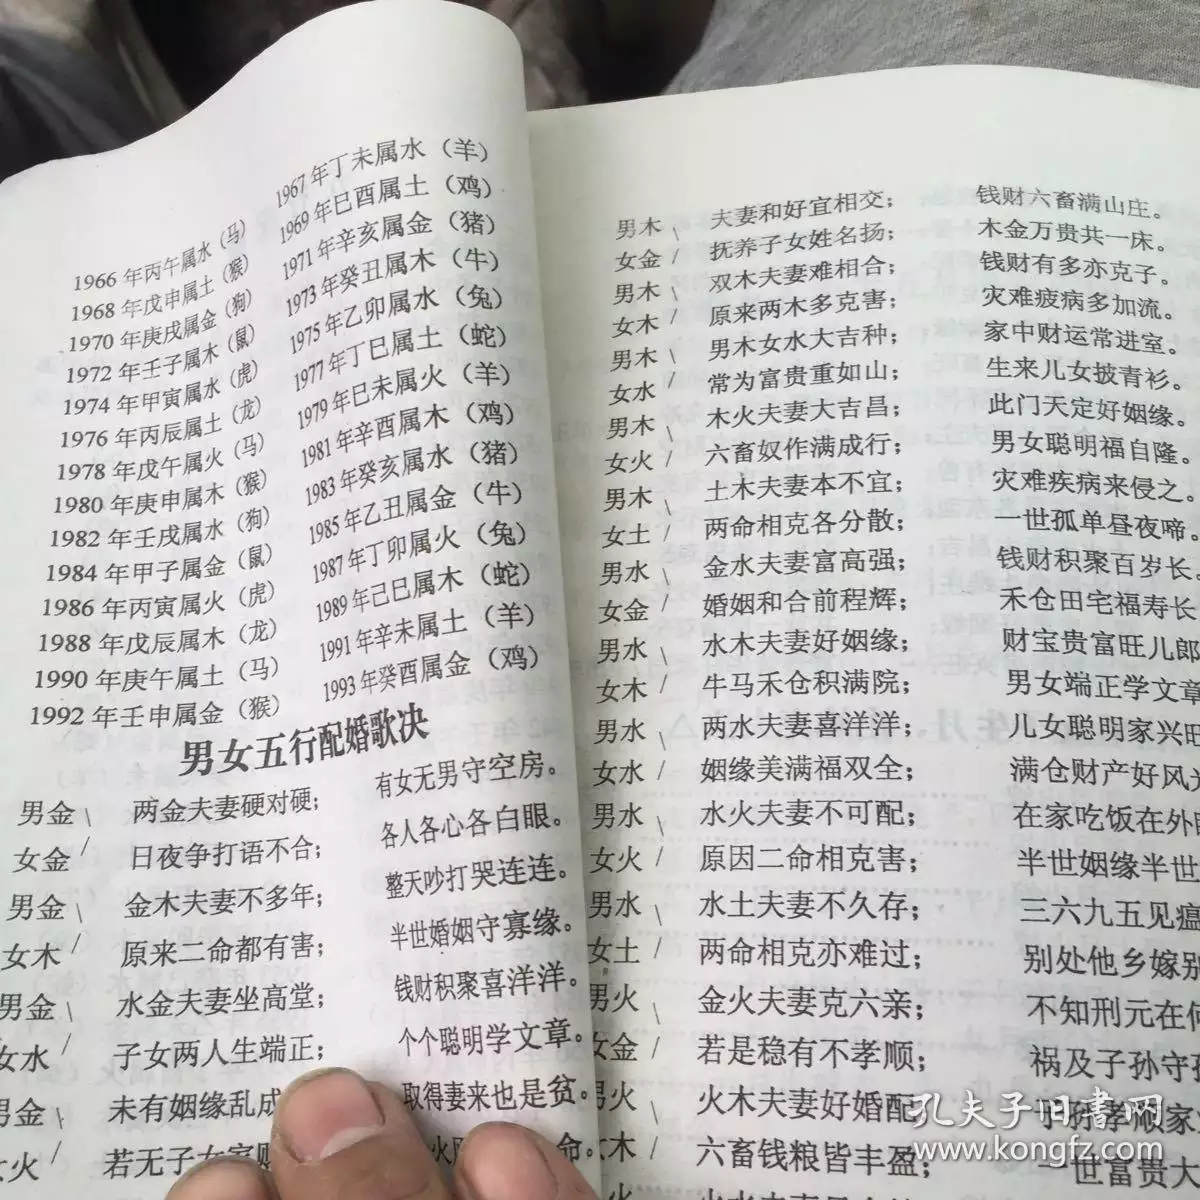 1966年丙午属水（马） 1967年丁未属水（羊）
1968年戊申属土（猴） 1969年巳酉属土（鸡）
1970年庚戌属金（狗） 1971年辛亥属金（猪）
1972年壬子属木（鼠） 1973年癸丑属木（牛）
1974年甲寅属水（虎） 1975年乙卯属水（兔）
1976年丙辰属土（龙） 1977年丁巳属土（蛇）
1978年戊午属火（马） 1979年巳未属火（羊）
1980年庚申属木（猴） 1981年辛酉属木（鸡）
1982年壬戌属水（狗） 1983年癸亥属水（猪）
1984年甲子属金（鼠） 1985年乙丑属金（牛）
1986年丙寅属火（虎） 1987年丁卯属火（兔）
1988年戊辰属木（龙） 1989年己巳属木（蛇）
1990年庚午属土（马） 1991年辛未属土（羊）
1992年壬申属金（猴） 1993年癸酉属金（鸡）
男女五行配婚歌决
男金 两金夫妻硬对硬； 有女无男守空房。
女金 日夜争打语不合； 各人各心各白眼。
男金 金木夫妻不多年； 整天吵打哭连连。
女木 原来二命都有害； 半世婚姻守寡缘。
男金 水金夫妻坐高堂； 钱财积聚喜洋洋。
女水 子女两人生端正； 个个聪明学文章。
男金 未有姻缘乱成 取得妻来也是贫。
女火 若无子女家 命。
男木 夫妻和好宜相交； 钱财六畜满山庄。
女金 抚养子女姓名扬； 木金万贵共一床。
男木 双木夫妻难相合； 钱财有多亦克子。
女木 原来两木多克害； 灾难疲病多加流。
男木 男木女水大吉种； 家中财运常进室。
女水 常为富贵重如山； 生来儿女披青衫。
男木 木火夫妻大吉昌； 此门天定好姻缘。
女火 六畜奴作满成行； 男女聪明福自隆。
男木 土木夫妻本不宜； 灾难疾病来侵之。
女土 两命相克各分散； 一世孤单昼夜啼。
男水 金水夫妻富高强； 钱财积聚百岁长
女金 婚姻和合前程辉； 禾仓田宅福寿长
男水 水木夫妻好姻缘； 财宝贵富旺儿郎
女木 牛马禾仓积满院； 男女端正学文章
男水 两水夫妻喜洋洋； 儿女聪明家兴旺
女水 姻缘美满福双全； 满仓财产好风光
男水 水火夫妻不可配； 在家吃饭在外
女火 原因二命相克害； 半世姻缘半世
男水 水土夫妻不久存； 三六九五见瘟
女土 两命相克亦难过； 别处他乡嫁别
男火 金火夫妻克六亲； 不知刑元在何
女金 若是稳有不孝顺； 祸及子孙守孤
男火 火木夫妻好婚配 子孙孝顺家
女木 六畜钱粮皆丰盈； 一世富贵大
孔夫子旧书网
www.kongfz.com